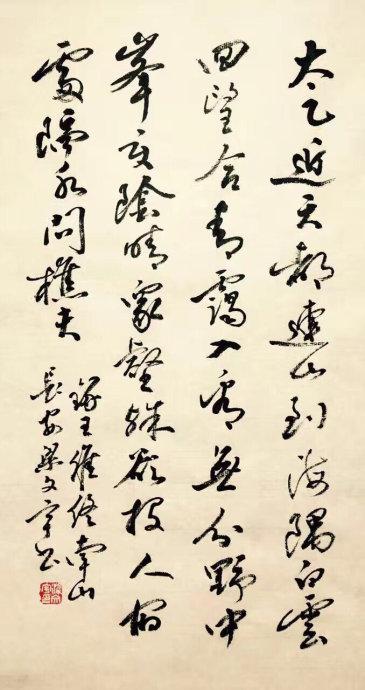 太乙近天都連山到海隅白雲
回望合青靄入看無分野中
峯变陰晴眾壑殊欲投人宿
處隔水問樵夫
錄王維終南山
長安梁文宇書